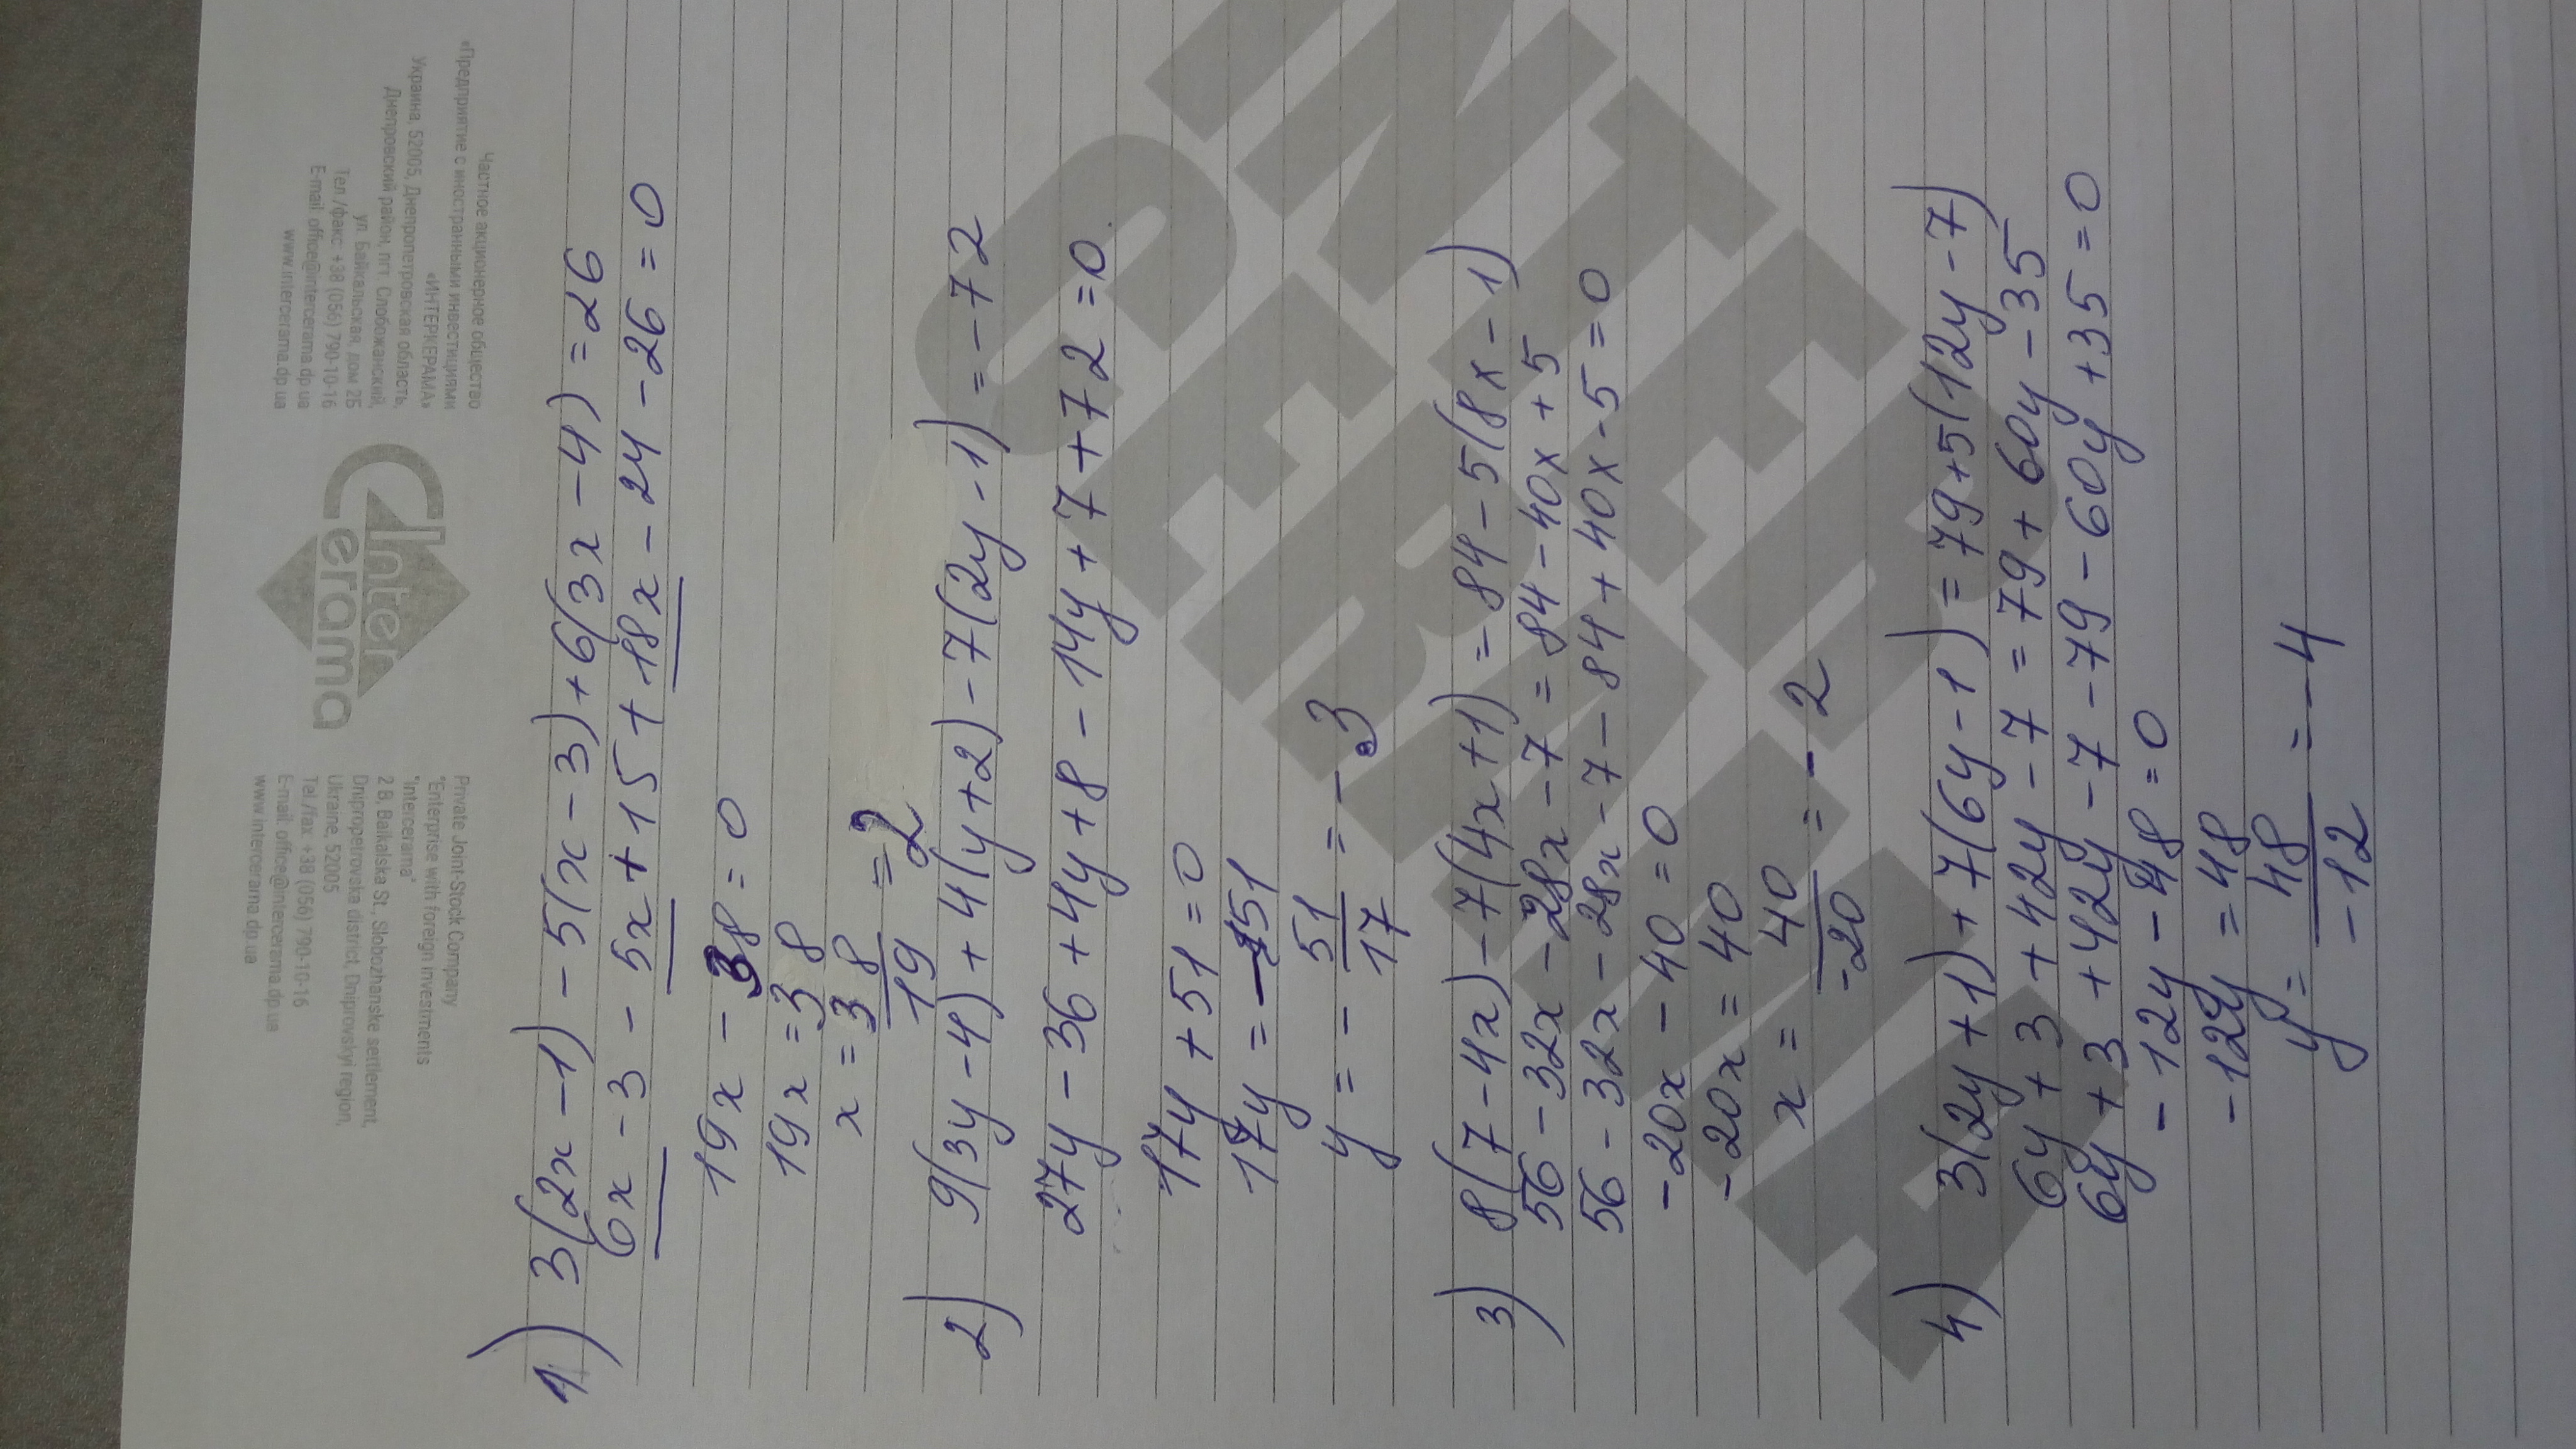 Private Joint-Stock Company
"Enterprise with foreign investments
"Intercerama"
2 B, Baikalska St., Slobozhanske settlement,
Dnipropetrovska district, Dniprovskyi region,
Ukraine, 52005
Tel./fax: +38 (056) 790-10-16
E-mail: office@intercerama.dp.ua
www.intercerama.dp.ua
Inter
Cerama
Частное акционерное общество
«Предприятие с иностранными инвестициями
«ИНТЕРКЕРАМА»
Украина, 52005, Днепропетровская область,
Днепровский район, пгт. Слобожанский,
ул. Байкальская, дом 2Б
Тел./факс: +38 (056) 790-10-16
E-mail: office@intercerama.dp.ua
www.intercerama.dp.ua
1) 3(2x-1)-5(x-3)+6(3x-4)=26
6x-3-5x+15+18x-24-26=0
19x-38=0
19x=38
x=38/19=2
2) 9(3y-4)+4(y+2)-7(2y-1)=-72
27y-36+4y+8-14y+7+72=0
17y+51=0
17y=-51
y=-51/17=-3
3) 8(7-4x)-7(4x+1)=84-5(8x-1)
56-32x-28x-7=84-40x+5
56-32x-28x-7-84+40x-5=0
-20x-40=0
-20x=40
x=40/-20=-2
4) 3(2y+1)+7(6y-1)=79+5(12y-7)
6y+3+42y-7=79+60y-35
6y+3+42y-7-79-60y+35=0
-12y-48=0
-12y=48
y=48/-12=-4